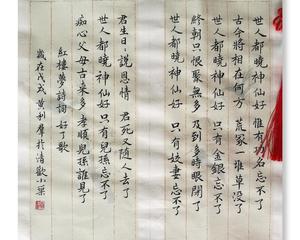 世人都曉神仙好 惟有功名忘不了
古今將相在何方 荒冢一堆草没了
世人都曉神仙好 只有金銀忘不了
終朝只恨聚無多 及到多時眼閉了
世人都曉神仙好 只有姣妻忘不了
君生日日說恩情 君死又隨人去了
世人都曉神仙好 只有兒孫忘不了
痴心父母古來多 孝順兒孫誰見了
紅樓夢詩詞 好了歌
歲在戊戌 黄利群於清歡小築